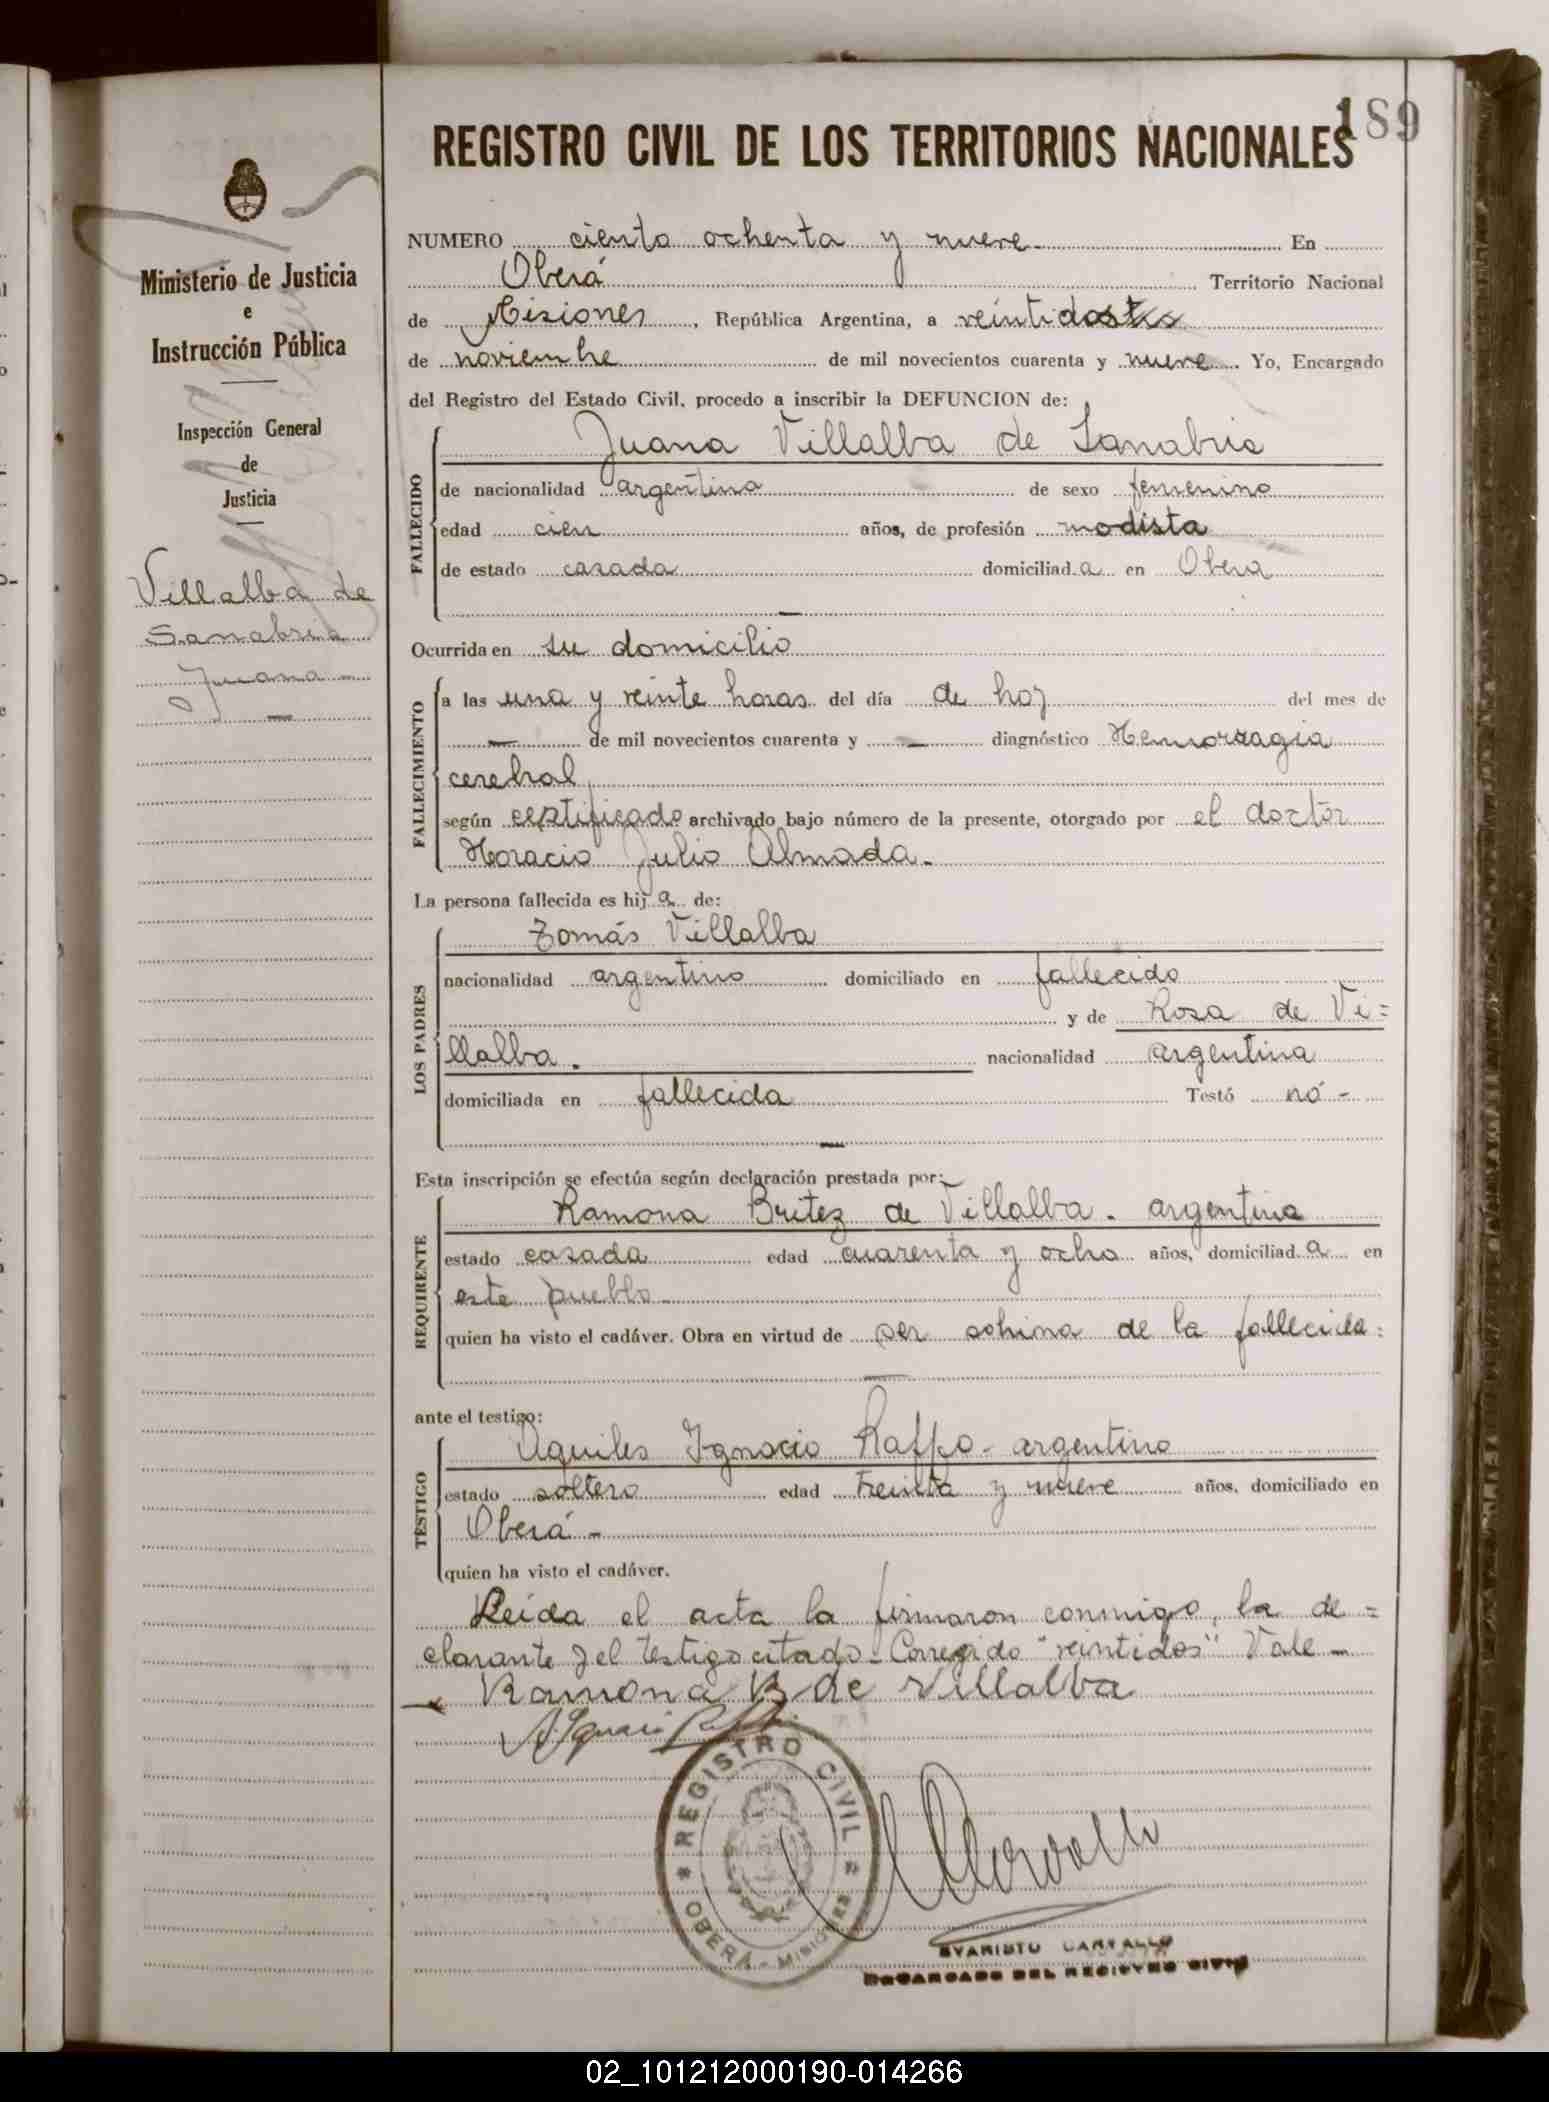 189
REGISTRO CIVIL DE LOS TERRITORIOS NACIONALES
Ministerio de Justicia
e
Instrucción Pública
Inspección General
de
Justicia
Villalba de
Sanabria
Juana
NUMERO ciento ochenta y nueve En
Oberá Territorio Nacional
de Misiones, República Argentina, a veintidos
de noviembre de mil novecientos cuarenta y nueve Yo, Encargado
del Registro del Estado Civil, procedo a inscribir la DEFUNCION de:
FALLECIDO
Juana Villalba de Sanabria
de nacionalidad argentina de sexo femenino
edad cien años, de profesión modista
de estado casada domiciliada en Oberá
Ocurrida en su domicilio
FALLECIMIENTO
a las una y veinte horas del día de hoy del mes de
— de mil novecientos cuarenta y — diagnóstico Hemorragia
cerebral
según certificado archivado bajo número de la presente, otorgado por el doctor
Horacio Julio Almada.
La persona fallecida es hija de:
LOS PADRES
Tomás Villalba
nacionalidad argentino domiciliado en fallecido
y de Rosa de Vi=
llalba. nacionalidad argentina
domiciliada en fallecida Testó nó-
Esta inscripción se efectúa según declaración prestada por:
REQUIRENTE
Ramona Britez de Villalba. argentina
estado casada edad cuarenta y ocho años, domiciliada en
este pueblo
quien ha visto el cadáver. Obra en virtud de ser sobrina de la fallecida:
ante el testigo:
TESTIGO
Aquiles Ignacio Raffo- argentino
estado soltero edad treinta y nueve años, domiciliado en
Oberá-
quien ha visto el cadáver.
Leída el acta la firmaron conmigo, la de=
clarante y el testigo citado- Corregido "veintidos" Vale-
Ramona B de Villalba
REGISTRO CIVIL
OBERÁ - MISIONES
EVARISTO CARVALLO
ENCARGADO DEL REGISTRO CIVIL
02_101212000190-014266